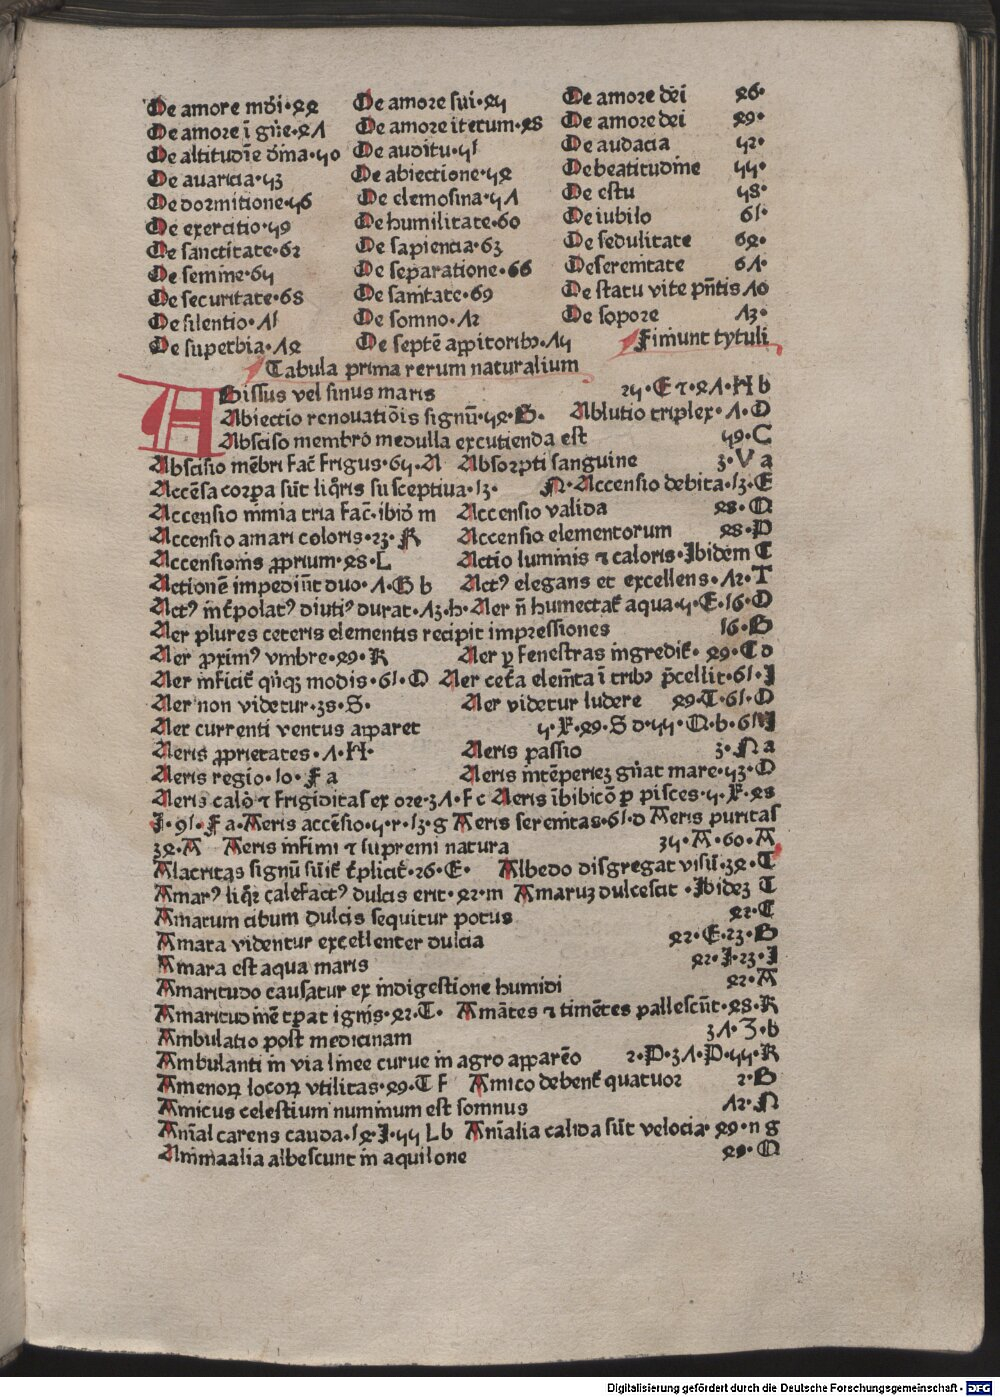 De amore mūdi·44 De amore sui·45 De amore dei 46·
De amore ī gn̄e·47 De amore iterum·48 De amore dei 49·
De altitudīe dīna·50 De auditu·51 De audacia 52·
De auaricia·53 De abiectione·54 De beatitudine 55·
De dormitione·56 De elemosina·57 De estu 58·
De exercitio·59 De humilitate·60 De iubilo 61·
De sanctitate·62 De sapientia·63 De sedulitate 64·
De semine·65 De separatione·66 De serenitate 67·
De securitate·68 De sanitate·69 De statu vite pn̄tis 70
De silentio·71 De somno·72 De sopore 73·
De superbia·74 De septē appitorib᷒·75 Finiunt tytuli
Tabula prima rerum naturalium
ABissus vel sinus maris 25·E ⁊·47·H b
Abiectio renouatiōis signū·54·B· Ablutio triplex·7·D
Absciso membro medulla excutienda est 59·C
Abscisio mēbri fac̄ frigus·65·A Absorpti sanguine 3·V a
Accēsa corpa sūt liq̄ris susceptiua·13· N·Accensio debita·13·E
Accensio nimia tria fac̄·ibid̄ m Accensio valida 48·O
Accensio amari coloris·23·K Accensio elementorum 48·P
Accensionis ꝓprium·48·L Actio luminis ⁊ caloris·Ibidem C
Actionē impediūt duo·7·G b Actꝰ elegans et excellens·72·T
Actꝰ īt̄polatꝰ diutiꝰ durat·73·h·Aer n̄ humectat̄ aqua·5·E·16·D
Aer plures ceteris elementis recipit impressiones 16·B
Aer ꝓximꝰ vmbre·49·K Aer ꝑ fenestras ingredit̄·49·C d
Aer inficit̄ qn̄q̨ modis·61·D Aer cet̄a elem̄ta ī trib᷒ p̄cellit·61·I
Aer non videtur·38·S· Aer videtur ludere 49·T·61·O
Aer currenti ventus apparet 5·X·49·S d·55·O·b·61·I
Aeris ꝓprietates·7·H· Aeris passio 3·N a
Aeris regio·10·F a Aeris intēperieꝫ gn̄at mare·53·O
Aeris calō ⁊ frigiditas ex ore·37·F c Aeris ībibicō p pisces·5·X·48
I·91·F a·Aeris accēsio·5·r·13·g Aeris serenitas·61·d Aeris puritas
34·A Aeris infimi ⁊ supremi natura 35·A·60·A
Alacritas signū sūit̄ t̄plicit̄·26·E· Albedo disgregat visū·34·T
Amarꝰ liq̄r calefactꝰ dulcis erit·42·m Amaruꝫ dulcescit·Ibideꝫ T
Amarum cibum dulcis sequitur potus 42·C
Amara videntur excellenter dulcia 42·E·23·B
Amara est aqua maris 42·I·23·I
Amaritudo causatur ex indigestione humidi 42·A
Amaritudinē tꝑat ignis·42·T· Amātes ⁊ timētes pallescūt·48·K
Ambulatio post medicinam 37·Z·b
Ambulanti in via linee curue in agro apparēo 2·P·37·P·55·K
Amenoꝝ locoꝝ vtilitas·49·T F Amico debent̄ quatuor 2·B
Amicus celestium nummum est somnus 72·N
Aīal carens cauda·14·I·55 L b Aīalia calida sūt velocia·49·n g
Animaalia albescunt in aquilone 49·O
Digitalisierung gefördert durch die Deutsche Forschungsgemeinschaft - DFG